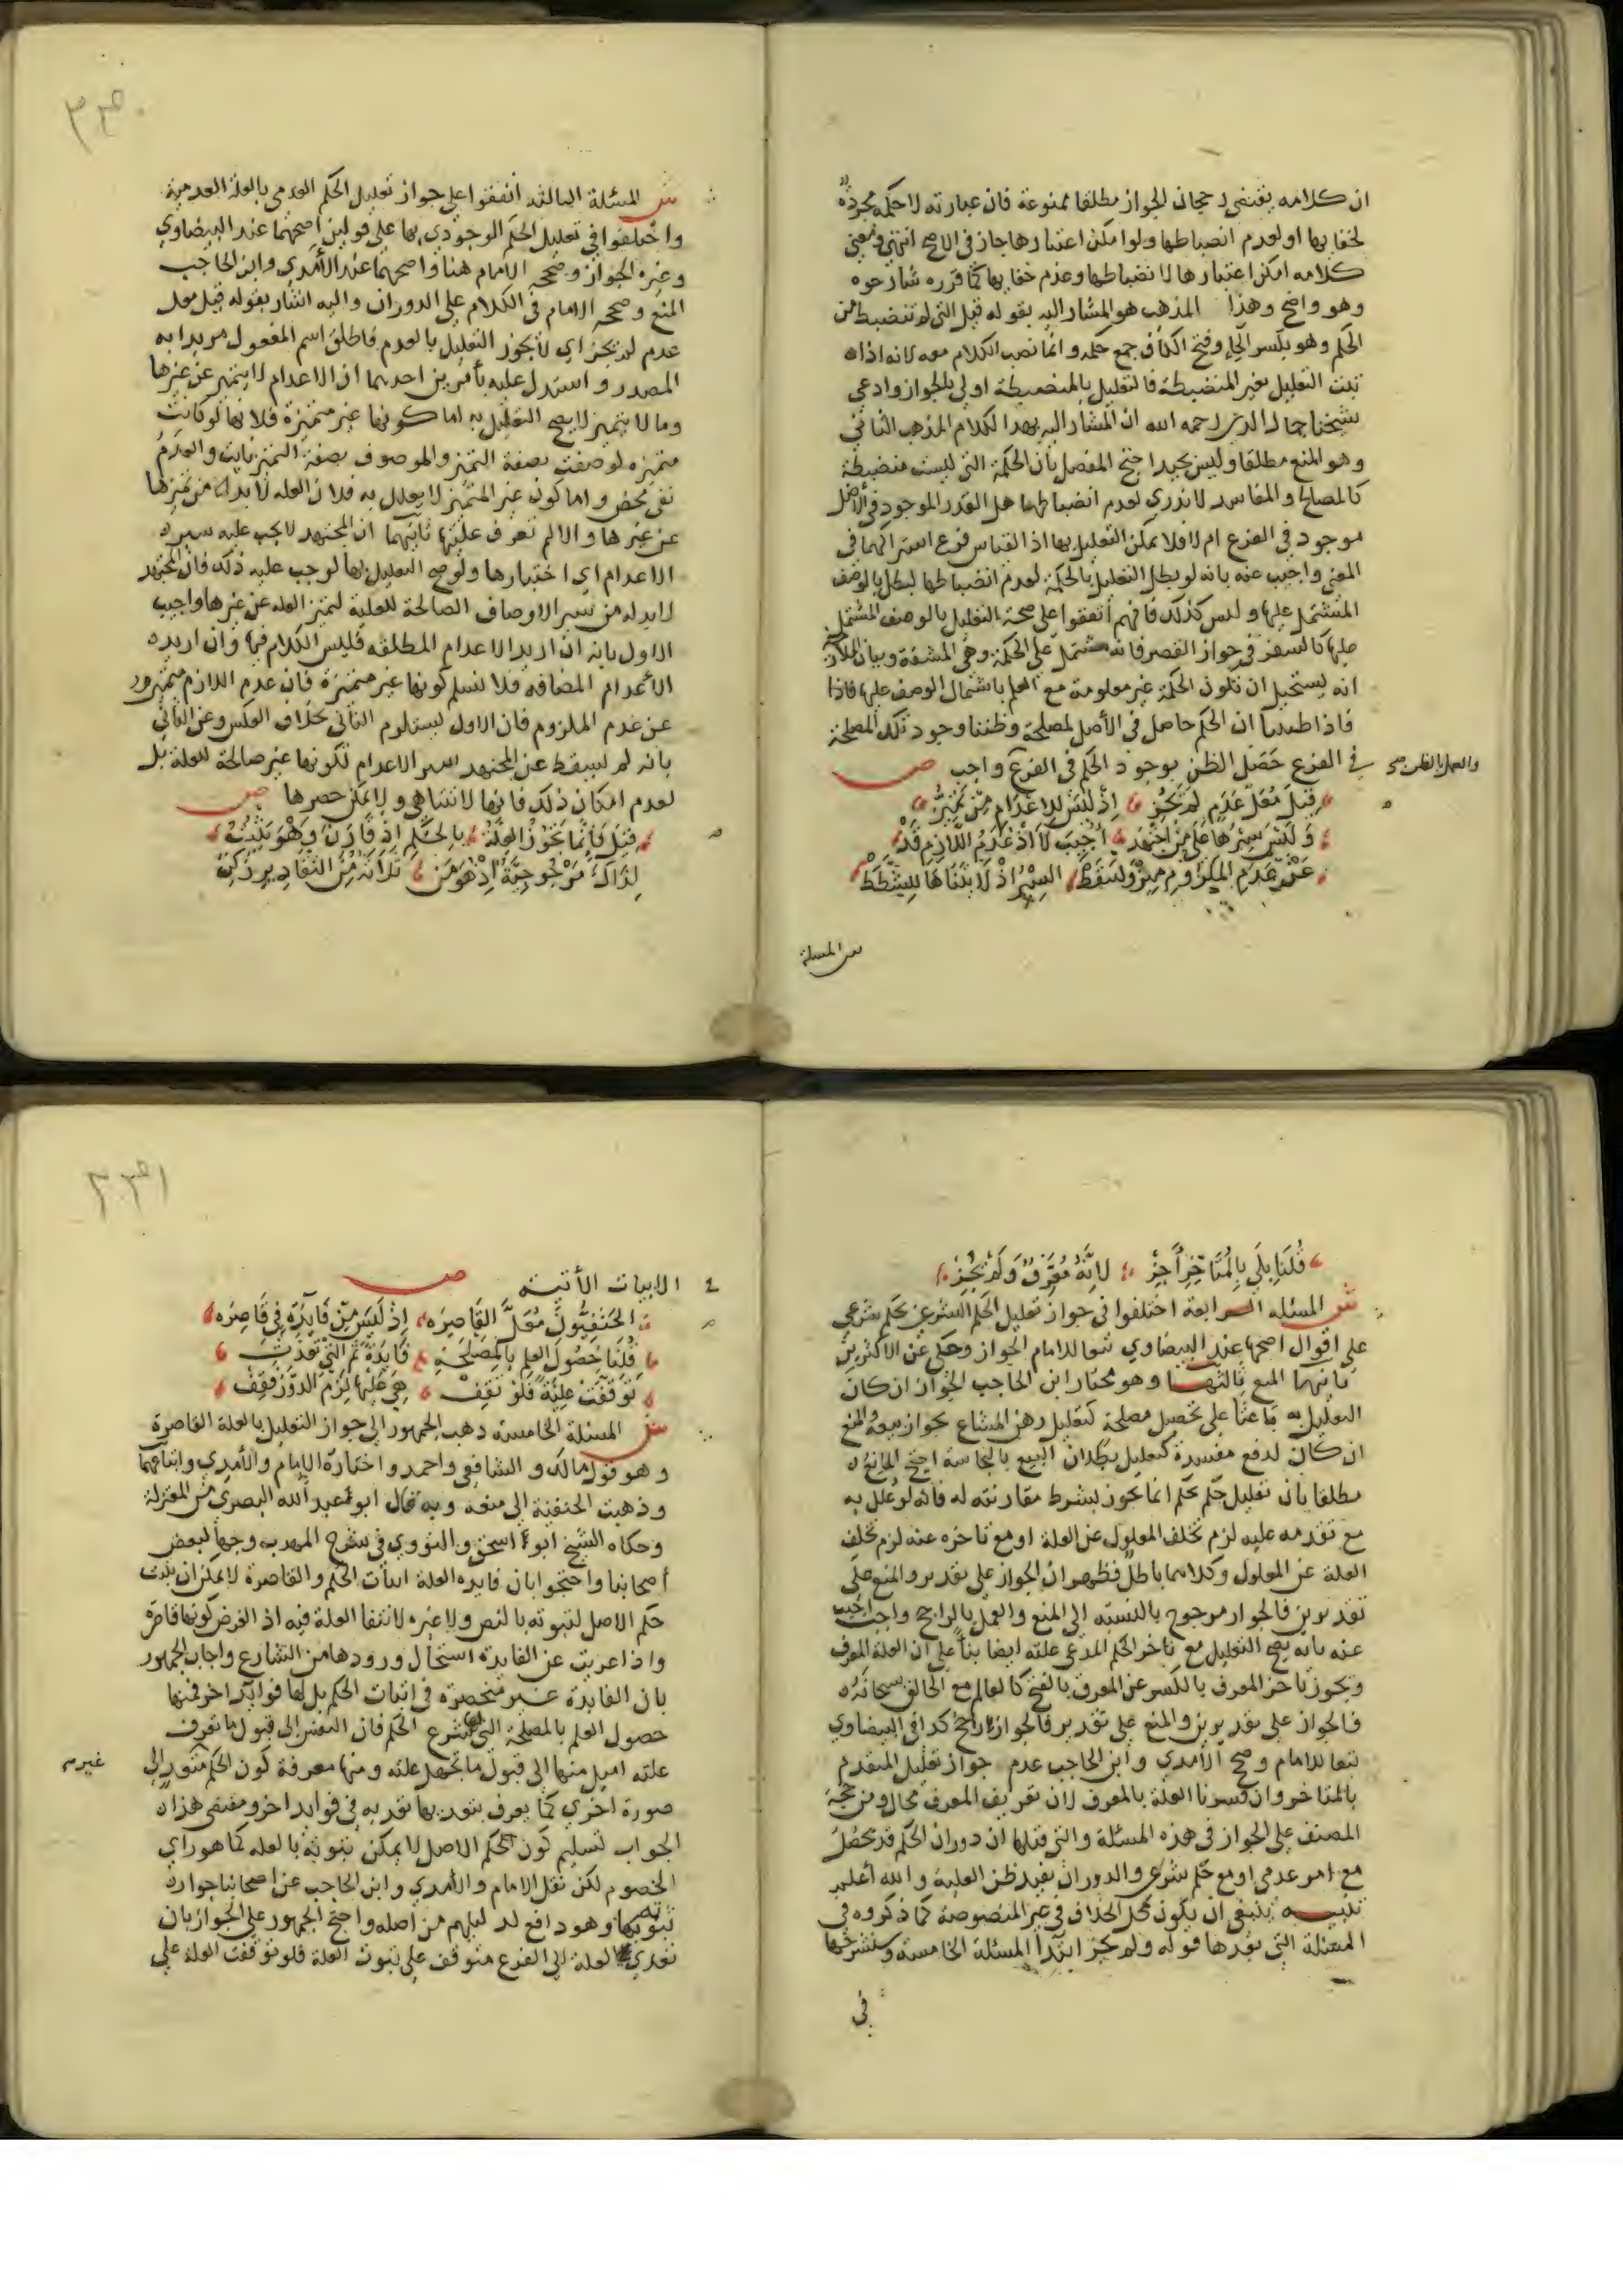 ان كلامه يقتضي رجحان الجواز مطلقا ممنوعة فان عبارته لا حكمة مجردة
لخفايها او لعدم انضباطها ولو امكن اعتبارها جاز في الاصح انتهى ومعنى
كلامه امكن اعتبارها لانضباطها وعدم خفايها كما قرره شارحوه
وهو واضح وهذا المذهب هو المشار اليه بقوله قيل التي لم تنضبط من
الحكم وهو بكسر الحاء وفتح الكاف جمع حكمه وانما نصب الكلام معه لانه اذا
ثبت التعليل بغير المنضبطة فالتعليل بالمنضبطة اولى بالجواز وادعى
شيخنا جمال الدين رحمه الله ان المشار اليه بهذا الكلام المذهب الثاني
وهو المنع مطلقا وليس بجيد احتج المفصل بأن الحكمة التي ليست منضبطة
كالمصالح والمفاسد لا ندري لعدم انضباطها هل القدر الموجود في الاصل
موجود في الفرع ام لا فلا يمكن التعليل بها اذ القياس فرع اشتراكهما في
المعنى واجيب عنه بانه لو بطل التعليل بالحكمة لعدم انضباطها لبطل بالوصف
المشتمل عليها وليس كذلك فانهم اتفقوا على صحة التعليل بالوصف المشتمل
عليها كالسفر في جواز القصر فانه مشتمل على الحكمة وهي المشقة وبيان الملازمة
انه يستحيل ان تكون الحكمة غير معلومة مع العلم باشتمال الوصف عليها فاذا
فاذا ظننا ان الحكم حاصل في الأصل لمصلحة وظننا وجود تلك المصلحة
في الفرع حصل الظن بوجود الحكم في الفرع واجب ص
والعمل بالظن صح
قِيلَ مُعَلُّ عَدَمٍ لَمْ يَجُزِ إِذْ لَيْسَ لِلاِعْدَامِ مِنْ تَمَيُّزِ
وَلَيْسَ سَبْرُهَا عَلَى مَنْ اجْتَهَدْ أُجِيبَ لَا اذْ عَدَمُ اللَّازِمِ قَدْ
عَنْ عَدَمِ الْمَلْزُومِ مِيزَ وَسَقَطْ السَّبْرُ اذْ لَا يَتَنَاهَى لِلشَّطَطْ
ش المسئلة
ش المسئلة الثالثه اتفقوا على جواز تعليل الحكم العدمى بالعلة العدمية
واختلفوا في تعليل الحكم الوجودي بها على قولين اصحهما عند البيضاوي
وغيره الجواز وصححه الامام هنا واصحهما عند الآمدي وابن الحاجب
المنع وصححه الامام في الكلام على الدوران واليه اشار بقوله قيل معل
عدم لم يجز اي لا يجوز التعليل بالعدم فاطلق اسم المفعول مريدا به
المصدر واستدل عليه بأمرين احدهما ان الاعدام لا يتميز عن غيرها
وما لا يتميز لا يصح التعليل به اما كونها غير متميزة فلانها لو كانت
متميزه لوصفت بصفة التميز والموصوف بصفة التميز ثابت والعدم
نفي محض واما كون غير المتميز لا يعلل به فلان العله لا بد من تميزها
عن غيرها والا لم تعرف عليتها ثانيهما ان المجتهد لا يجب عليه سبر
الاعدام اي اختبارها ولو صح التعليل بها لوجب عليه ذلك فان المجتهد
لا بد له من سبر الاوصاف الصالحة للعلية لتميز العله عن غيرها واجيب
الاول بانه ان اريد الاعدام المطلقه فليس الكلام فيها وان اريد
الأعدام المضافه فلا نسلم كونها غير متميزة فان عدم اللازم متميز
عن عدم الملزوم فان الاول يستلزم الثاني بخلاف العكس وعن الثاني
بانه لم يسقط عن المجتهد سبر الاعدام لكونها غير صالحة للعلة بل
لعدم امكان ذلك فانها لا تتناهى ولا يمكن حصرها ص
قِيلَ فَإِنَّمَا يَجُوزُ الْعِلَّةُ بِالْحُكْمِ إِذْ قَارَنَ وَهْوَ يَثْبُتُ
لِذَاكَ مَرْجُوحِيَّةٌ إِذْ هُوَ مِنْ ثَلَاثَةٍ مِنَ التَّقَادِيرِ زُكِنْ
قُلْنَا بَلَى بِالْمُتَأَخِّرِ أَجِزْ لِأَنَّهُ مُعَرِّفٌ وَلَمْ يَجُزْ
ش المسئله الرابعة اختلفوا في جواز تعليل الحكم الشرعي بحكم شرعي
على اقوال اصحها عند البيضاوي تبعا للامام الجواز وحكى عن الاكثرين
ثانيها المنع ثالثها وهو مختار ابن الحاجب الجواز ان كان
التعليل به باعثا على تحصيل مصلحة كتعليل رهن المشاع بجواز بيعه والمنع
ان كان لدفع مفسدة كتعليل بطلان البيع بالنجاسة احتج المانع
مطلقا بان تعليل حكم بحكم انما يجوز بشرط مقارنته له فانه لو علل به
مع تقدمه عليه لزم تخلف المعلول عن العلة او مع تاخره عنه لزم تخلف
العلة عن المعلول وكلاهما باطل فظهر ان الجواز على تقدير والمنع على
تقديرين فالجواز مرجوح بالنسبة الى المنع والعمل بالراجح واجب اجيب
عنه بانه يصح التعليل مع تاخر الحكم المدعى علته ايضا بنأ على ان العلة المعرف
ويجوز تاخر المعرف بالكسر عن المعرف بالفتح كالعالم مع الخالق سبحانه
فالجواز على تقديرين والمنع على تقدير فالجواز ارجح كذا في البيضاوي
تبعا للامام وصحح الآمدي وابن الحاجب عدم جواز تعليل المتقدم
بالمتاخر وان فسرنا العلة بالمعرف لان تعريف المعرف محال ومن حجة
المصنف على الجواز في هذه المسئلة والتي قبلها ان دوران الحكم قد يحصل
مع امر عدمي او مع حكم شرعي والدوران يفيد ظن العلية والله أعلم
تنبيه ينبغي ان يكون محل الخلاف في غير المنصوصة كما ذكروه في
المسئلة التي بعدها قوله ولم يجز ابتدأ المسئلة الخامسة وسنشرحها
في
الابيات الأتية ص
الْحَنَفِيُّونَ مُعَلَّ الْقَاصِرَهْ إِذْ لَيْسَ مِنْ فَائِدَةٍ فِي قَاصِرَهْ
قُلْنَا حُصُولُ الْعِلْمِ بِالْمَصْلَحَةِ فَائِدَةٌ ثُمَّ الَّتِي تَعَدَّتِ
تَوَقَّفَتْ عِلِّيَّةً فَلَوْ تَقِفْ هِيَ عَلَيْهَا لَزِمَ الدَّوْرُ فَقِفْ
ش المسئلة الخامسة ذهب الجمهور الى جواز التعليل بالعلة القاصرة
وهو قول مالك والشافعي واحمد واختاره الامام والآمدي واتباعهما
وذهبت الحنفية الى منعه وبه قال ابو عبد الله البصري من المعتزلة
وحكاه الشيخ ابو اسحق والنووي في شرح المهذب وجها لبعض
أصحابنا واحتجوا بان فايده العلة اثبات الحكم والقاصرة لا يمكن ان يثبت
حكم الاصل لثبوته بالنص ولا غيره لانتفا العلة فيه اذ الغرض كونها قاصرة
واذا عريت عن الفايدة استحال ورودها من الشارع واجاب الجمهور
بان الفايدة غير منحصرة في اثبات الحكم بل لها فوايد اخر فمنها
حصول العلم بالمصلحة التي لها شرع الحكم فان النفس الى قبول ما تعرف
علته اميل منها الى قبول ما تجهل علته ومنها معرفة كون الحكم متعد الى
غير
صورة اخرى كما يعرف بتعديها تعديه في فوايد اخر ومقتضى هذا
الجواب تسليم كون الحكم الاصل لا يمكن ثبوته بالعله كما هو راي
الخصوم لكن نقل الامام والآمدي وابن الحاجب عن اصحابنا جواز
ثبوته بها وهو دافع لدليلهم من اصله واحتج الجمهور على الجواز بان
تعدي العلة الى الفرع متوقف على ثبوت العلة فلو توقفت العلة على